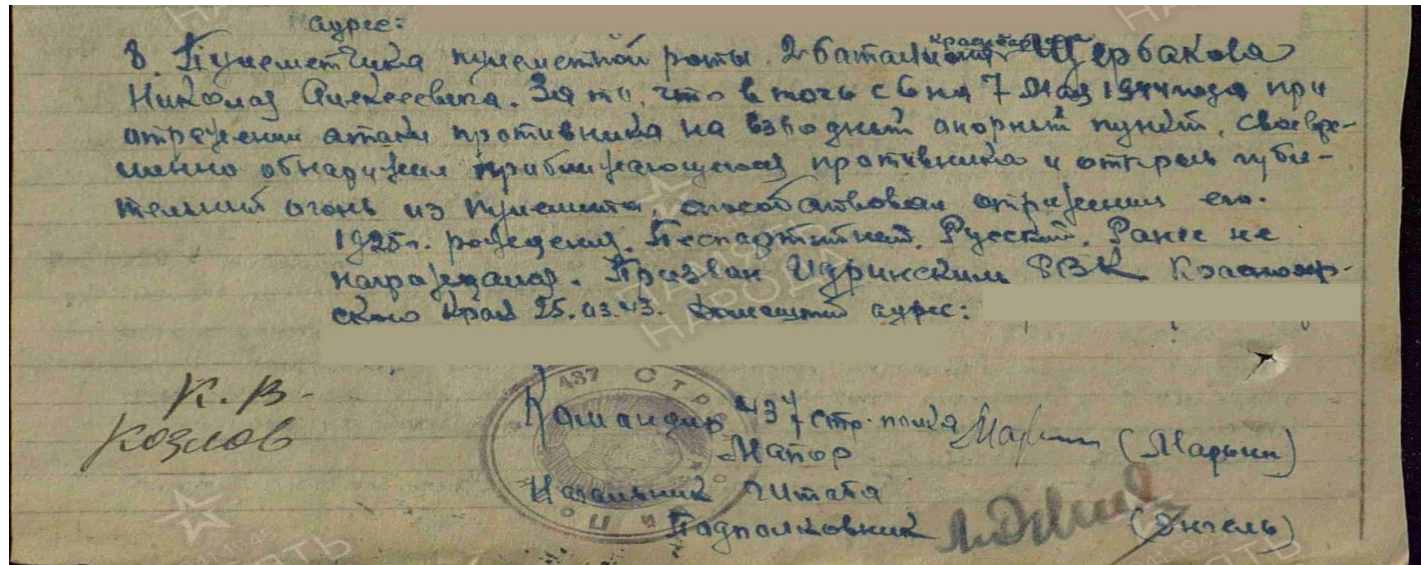 адрес:
8. Пулеметчика пулеметной роты 2 батальона красноармейца Щербакова
Николая Алексеевича. За то, что в ночь с 6 на 7 мая 1944 года при
отражении атаки противника на взводный опорный пункт, своевре-
менно обнаружил приближающегося противника и открыв губи-
тельный огонь из пулемета, способствовал отражению его.
1925 г. рождения. Беспартийный. Русский. Ранее не
награждался. Призван Идринским РВК Краснояр-
ского края 25.03.43. Домашний адрес:
К.В.
Козлов
437 Стр
Командир 437 стр. полка (Марьин)
Майор
Начальник Штаба
Подполковник (Энгель)
ПАМЯТЬ
НАРОДА